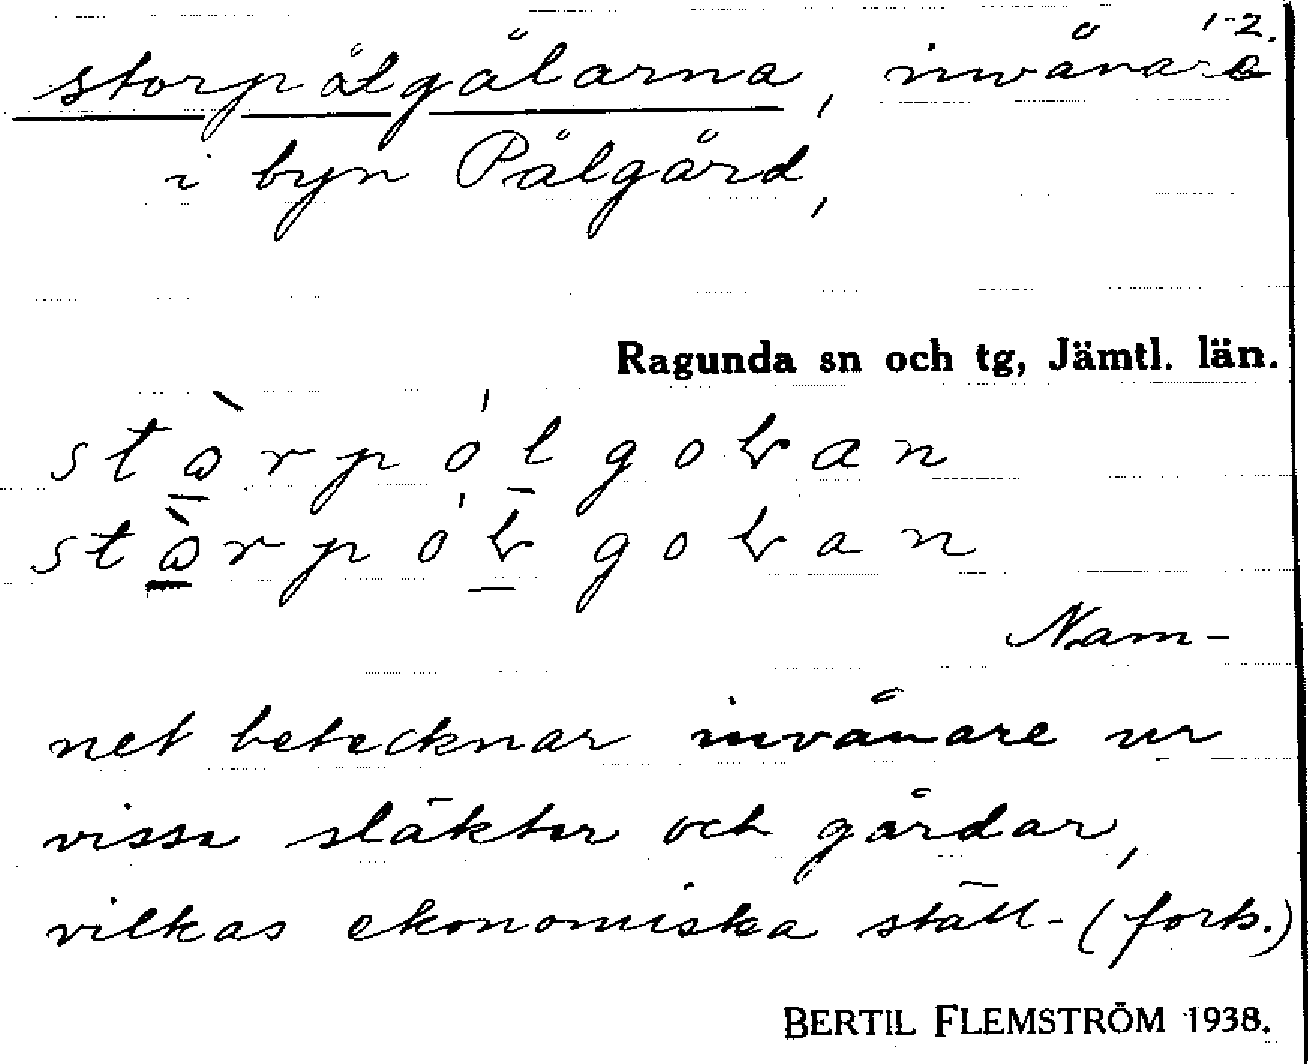 1-2.
storpålgålarna, invånare
i byn Pålgård,
Ragunda sn och tg, Jämtl. län.
Nam-
net betecknar invånare ur
vissa släkter och gårdar,
vilkas ekonomiska ställ- (forts.)
BERTIL FLEMSTRÖM 1938.